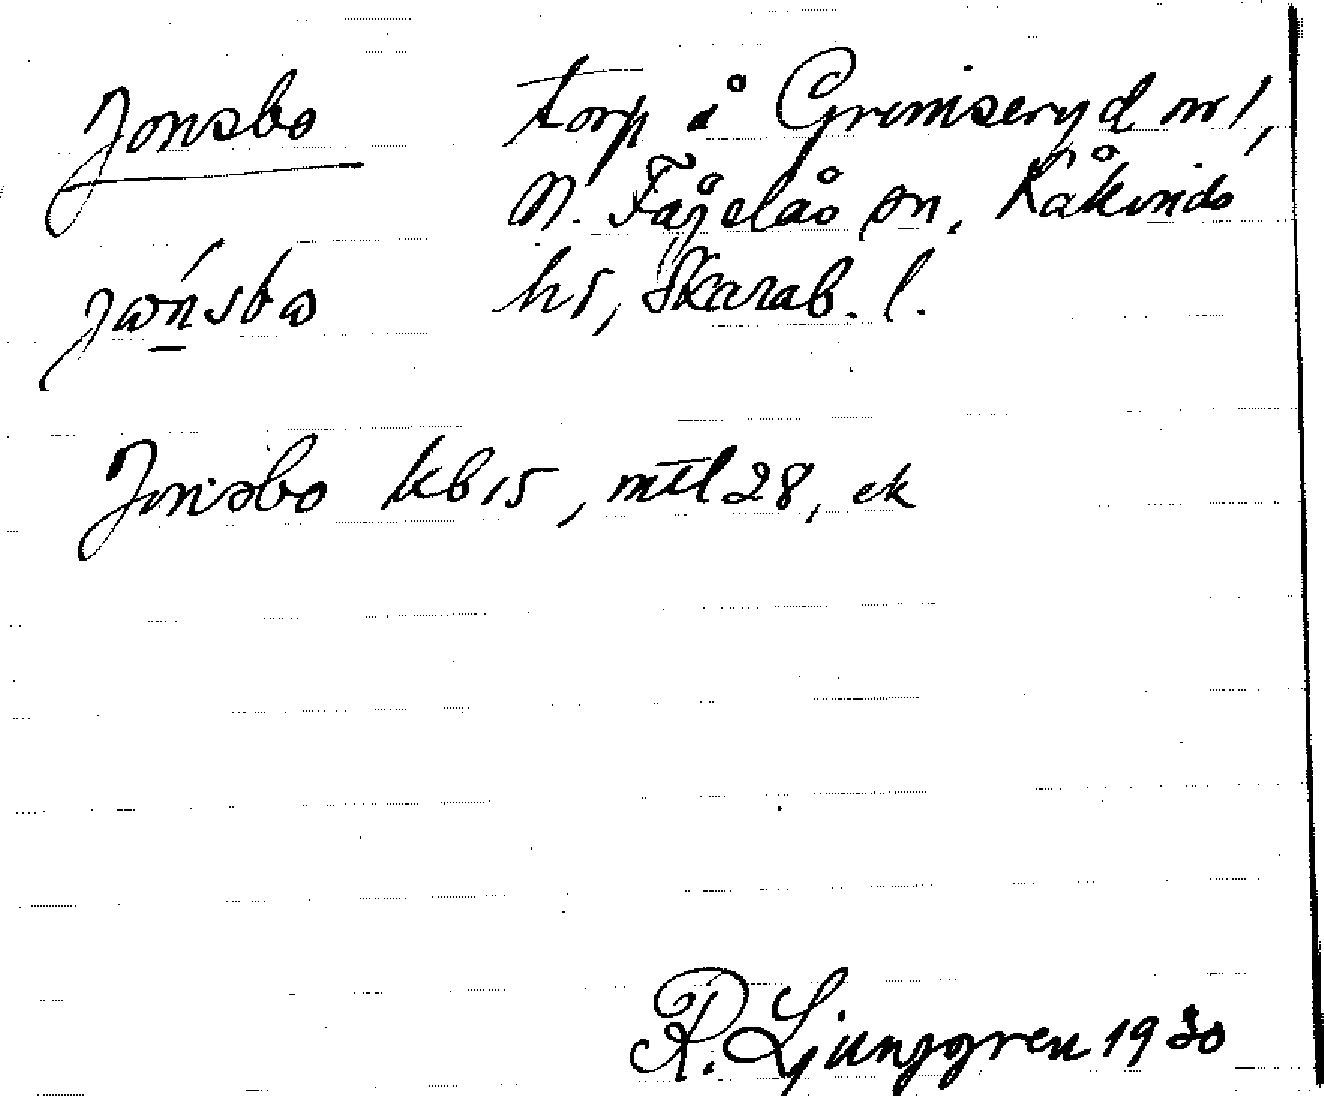 Jonsbo torp å Grimseryd nr 1,
N. Fågelås sn, Kåkinds
hd, Skarab. l.
Jonsbo kb 15, mtl 28, ek
R. Ljunggren 1930